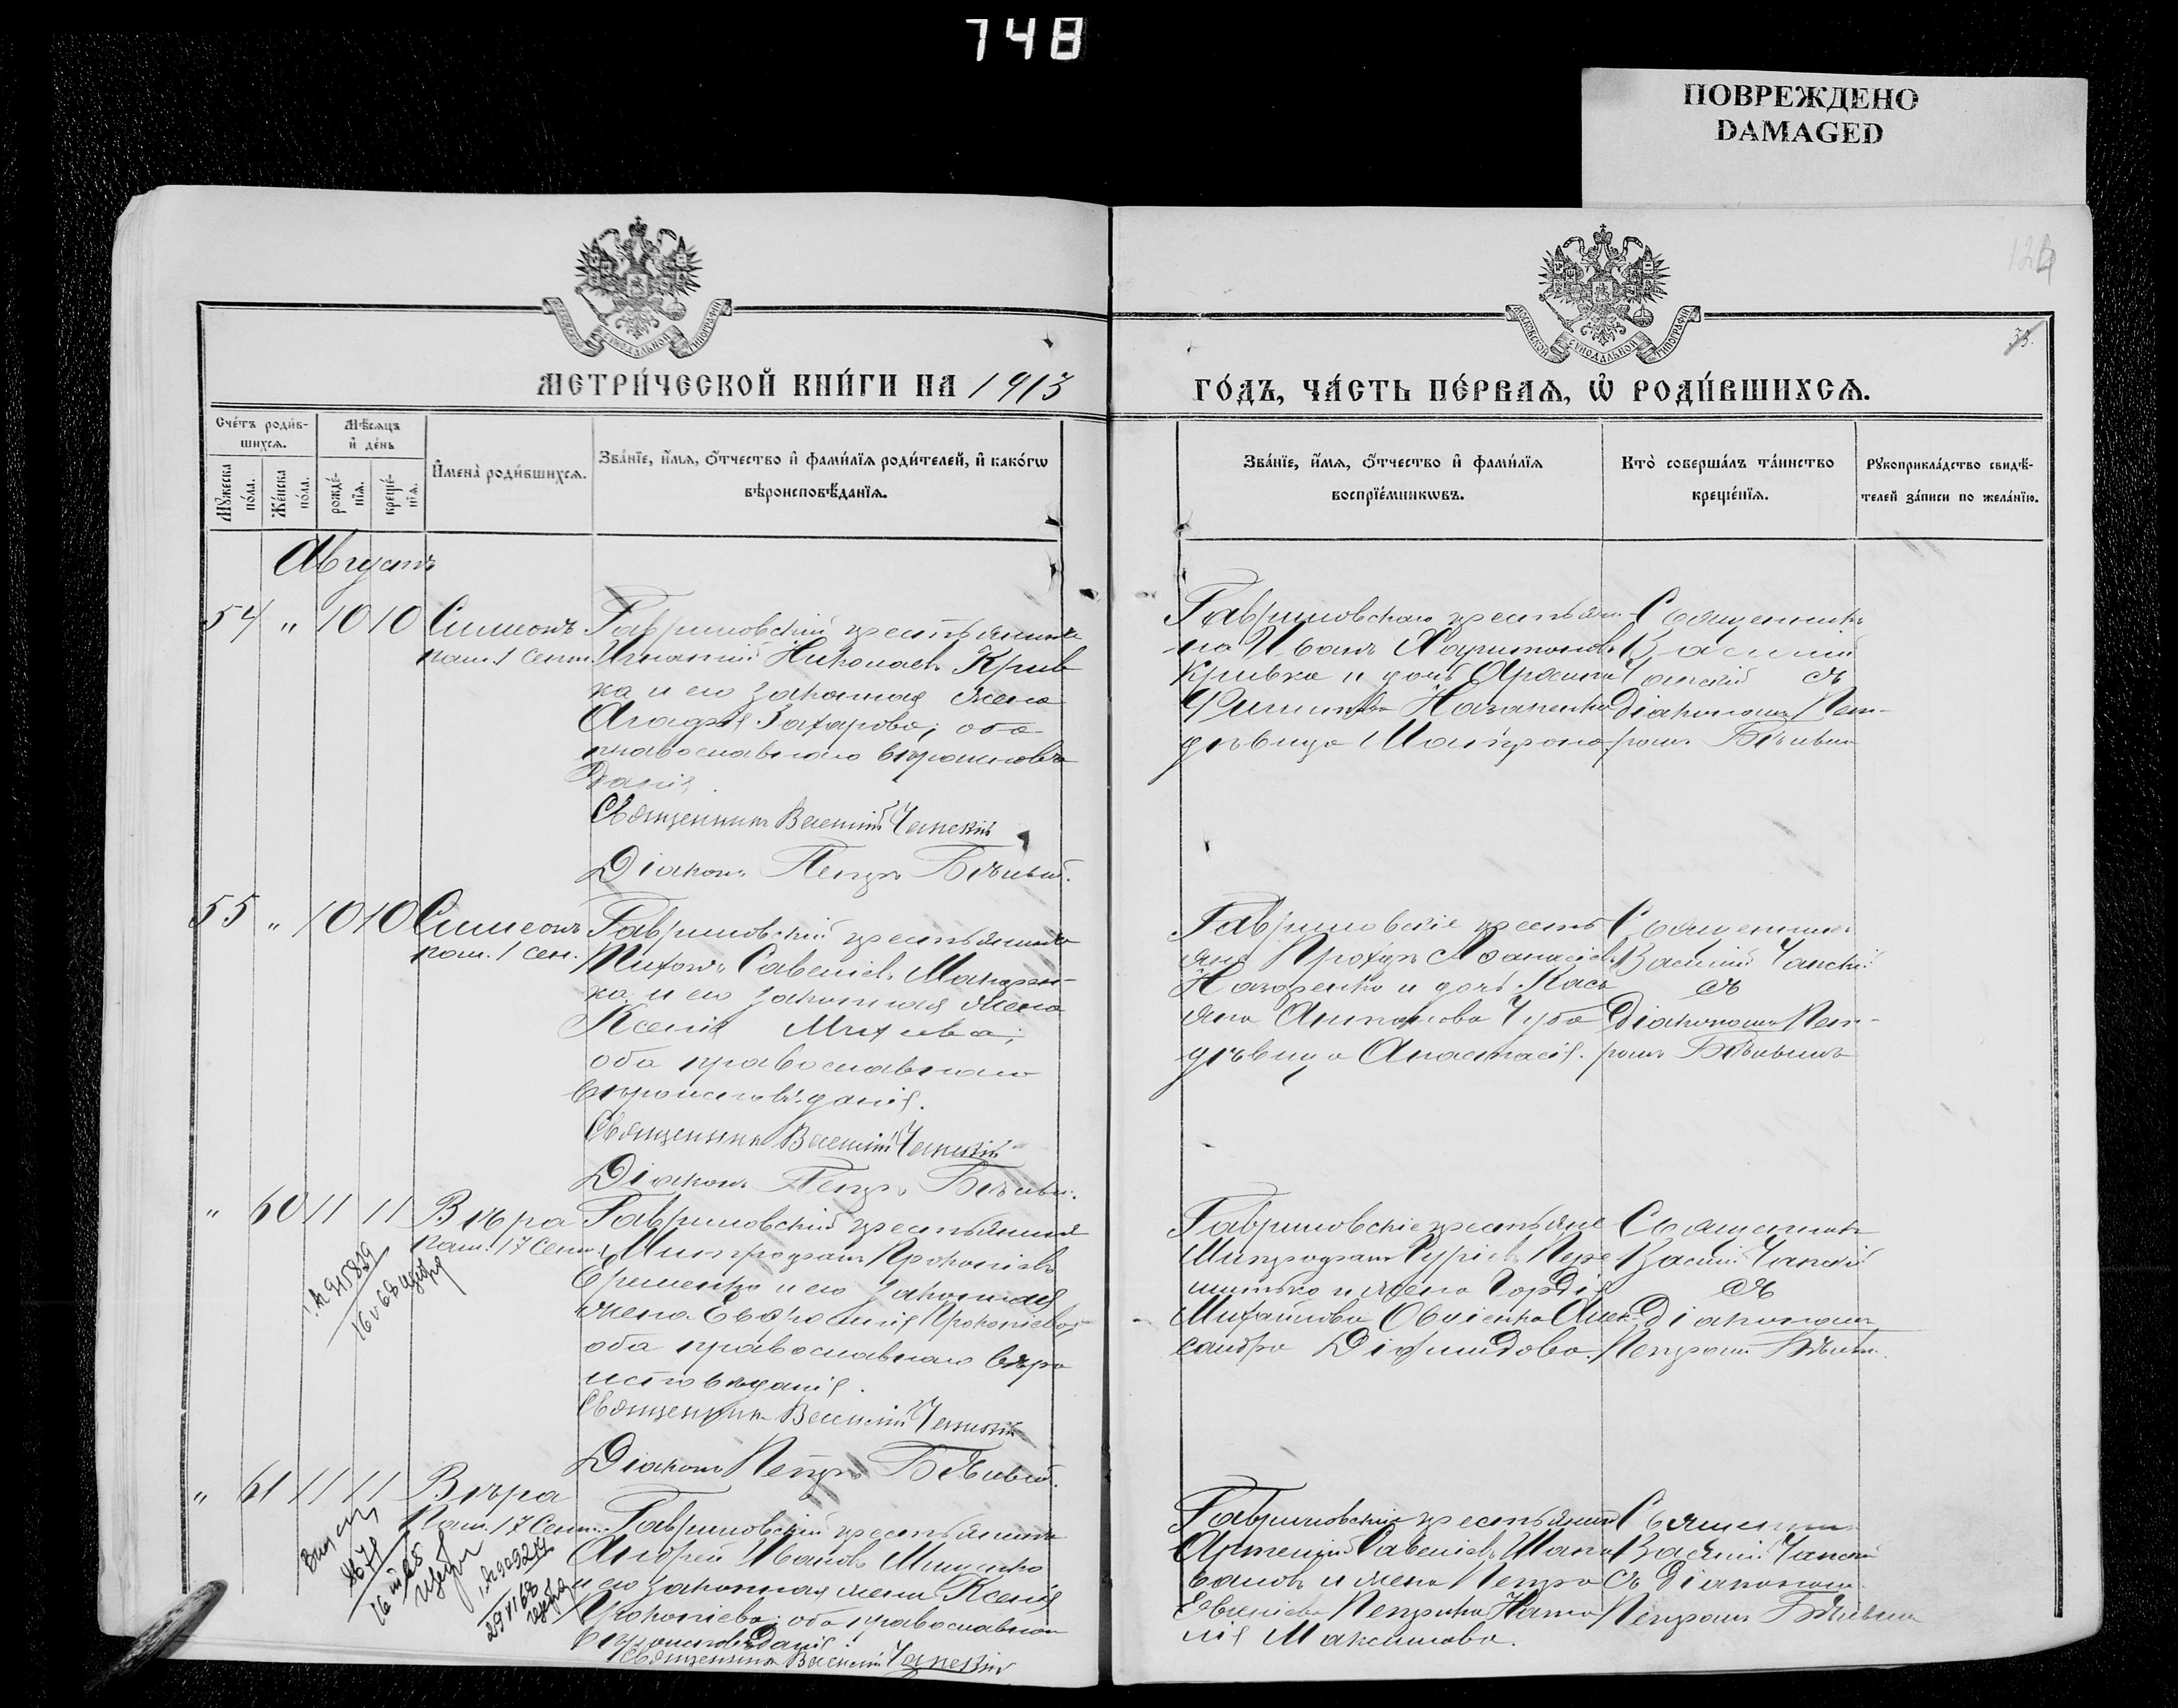 748
ПОВРЕЖДЕНО
DAMAGED
124
33.
МЕТРИ́ЧЕСКОЙ КНИ́ГИ НА 1913
ГО́ДЪ, ЧА́СТЬ ПЕ́РВАѦ, Ѡ҆ РОДИ́ВШИХСѦ.
Сче́тъ роди́в-
шихсѧ.
Мꙋ́жеска
по́ла.
Же́нска
по́ла.
Мѣ́сѧцъ
и҆ де́нь
рожде́-
нїѧ.
креще́-
нїѧ.
И҆мена̀ роди́вшихсѧ.
Зва́нїе, и҆́мѧ, ѻ҆́тчество и҆ фами́лїѧ роди́телей, и҆ како́гѡ
вѣроисповѣ́данїѧ.
Зва́нїе, и҆́мѧ, ѻ҆́тчество и҆ фами́лїѧ
воспрїе́мникѡвъ.
Кто̀ соверша́лъ та́инство
креще́нїѧ.
Рꙋкоприкла́дство свидѣ́-
телей за́писи по жела́нїю.
Августъ
54 " 10 10 Симеонъ
пам. 1 сент.
Гавриловскій крестьянинъ
Игнатій Николаевъ Крив
ка и его законная жена
Агафія Захарова; оба
православнаго вѣроисповѣ
данія.
Священникъ Василій Чапскій
Діаконъ Петръ Бѣлый.
Гавриловскаго крестьяни-
на Иванъ Харитоновъ
Кривка и дочь
Назаренко
дѣвица Матрона
Священникъ
Василій
Чапскій съ
діакономъ Пет-
ромъ Бѣлымъ
55 " 10 10 Симеонъ
пам. 1 сен.
Гавриловскій крестьянинъ
Тихонъ Савеліевъ Макарен-
ка и его законная жена
Ксенія
оба православнаго
вѣроисповѣданія.
Священникъ Василій Чапскій
Діаконъ Петръ Бѣлый.
Гавриловскіе кресть
яне Прохоръ Аѳанасіевъ
Назаренко и дочь Кась
яна Чуба
дѣвица Анастасія.
Священникъ
Василій Чапскій
съ
Діакономъ Пет-
ромъ Бѣлымъ
" 60 11 11 Вѣра
пам. 17 Сент.
Гавриловскій крестьянинъ
Митрофанъ Прокопіевъ
Еременко и его законная
жена Евфимія Прокопіева;
оба православнаго вѣро
исповѣданія.
Священникъ Василій Чапскій
Діаконъ Петръ Бѣлый.
Гавриловскіе крестьяне
Митрофанъ Гуріевъ
и жена Гордія
Михайлова Овсіенко Алек
сандра Діомидова.
Священникъ
Василій Чапскій
съ
Діакономъ
Петромъ Бѣлымъ.
" 61 11 11 Вѣра
Пам. 17 Сент.
Гавриловскій крестьянинъ
Андрей Ивановъ Мищенко
и его законная жена Ксенія
Прокопіева; оба православнаго
вѣроисповѣданія.
Священникъ Василій Чапскій
Гавриловскіе крестьянинъ
Артемій Савеліевъ
и жена Петра
Евгеніева Петренка
Максимова.
Священникъ
Василій Чапскій
съ Діакономъ
Петромъ Бѣлымъ